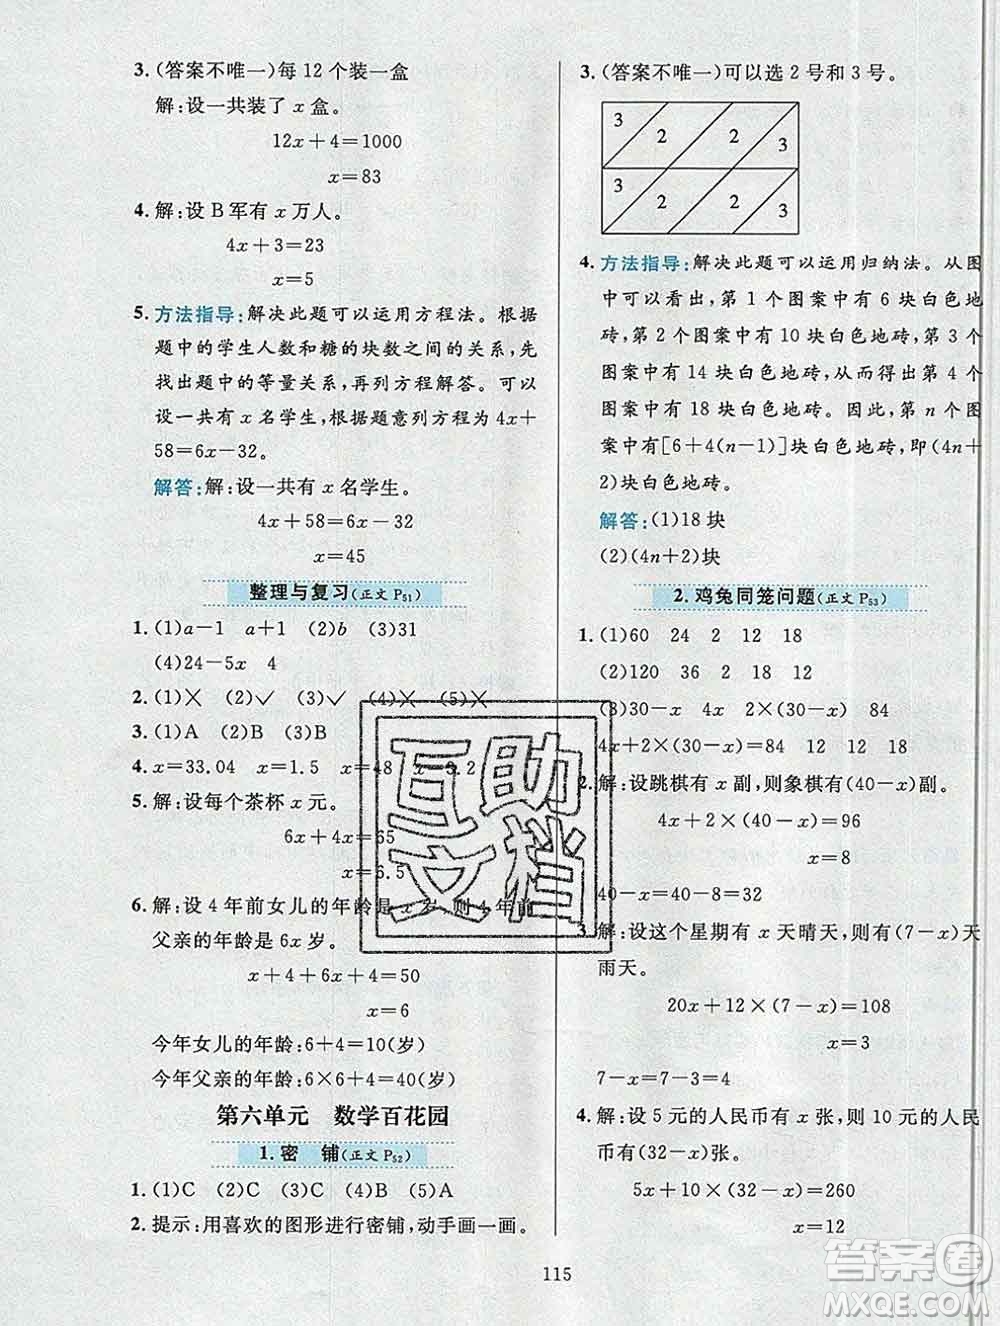 3. (答案不唯一)每 12 个装一盒
解:设一共装了 x 盒。
12x+4=1000
x=83
4. 解:设 B 军有 x 万人。
4x+3=23
x=5
5. 方法指导:解决此题可以运用方程法。根据
题中的学生人数和糖的块数之间的关系,先
找出题中的等量关系,再列方程解答。可以
设一共有 x 名学生,根据题意列方程为 4x+
58=6x-32。
解答:解:设一共有 x 名学生。
4x+58=6x-32
x=45
整理与复习(正文 P51)
1. (1)a-1 a+1 (2)b (3)31
(4)24-5x 4
2. (1)× (2)✓ (3)✓ (4)× (5)×
3. (1)A (2)B (3)B
4. x=33.04 x=6 x=48 x=3.2
5. 解:设每个茶杯 x 元。
6x+4x=65
x=6.5
6. 解:设 4 年前女儿的年龄是 x 岁,则 4 年前
父亲的年龄是 6x 岁。
x+4+6x+4=50
x=6
今年女儿的年龄:6+4=10(岁)
今年父亲的年龄:6×6+4=40(岁)
第六单元 数学百花园
1. 密 铺(正文 P52)
1. (1)C (2)C (3)C (4)B (5)A
2. 提示:用喜欢的图形进行密铺,动手画一画。
3. (答案不唯一)可以选 2 号和 3 号。
3 2 2 3
3 2 2 3
4. 方法指导:解决此题可以运用归纳法。从图
中可以看出,第 1 个图案中有 6 块白色地
砖,第 2 个图案中有 10 块白色地砖,第 3 个
图案中有 14 块白色地砖……后面的第 4 个
图案中有 18 块白色地砖。因此,第 n 个图
案中有[6+4(n-1)]块白色地砖,即(4n+
2)块白色地砖。
解答:(1)18 块
(2)(4n+2)块
2. 鸡兔同笼问题(正文 P53)
1. (1)60 24 2 12 18
(2)120 36 2 18 12
(3)30-x 4x 2×(30-x) 84
4x+2×(30-x)=84 12 12 18
2. 解:设跳棋有 x 副,则象棋有(40-x)副。
4x+2×(40-x)=96
x=8
40-x=40-8=32
3. 解:设这个星期有 x 天晴天,有(7-x)天
雨天。
20x+12×(7-x)=108
x=3
7-x=7-3=4
4. 解:设 5 元的人民币有 x 张,则 10 元的人民
币有(32-x)张。
5x+10×(32-x)=260
x=12
115
互助
文档
答案圈
MXQE.COM